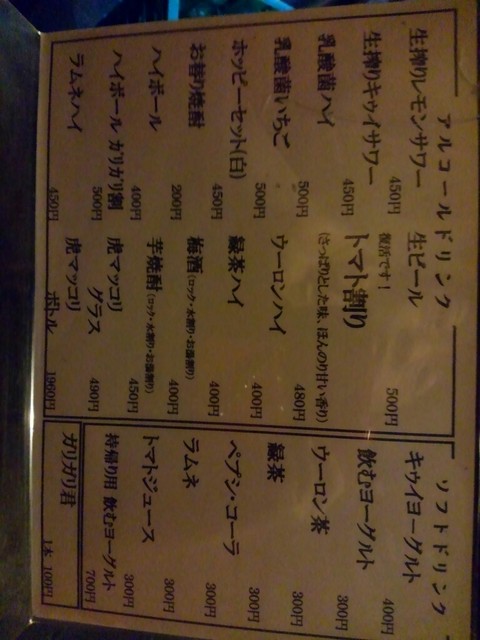 アルコールドリンク
生搾りレモンサワー 450円
生搾りキウイサワー 450円
乳酸菌ハイ 500円
乳酸菌いちご 500円
ホッピーセット(白) 450円
お替り焼酎 200円
ハイボール 400円
ハイボール ガリガリ割 500円
ラムネハイ 450円
生ビール 500円
復活です!
トマト割り 480円
(さっぱりとした味、ほんのり甘い香り)
ウーロンハイ 400円
緑茶ハイ 400円
梅酒(ロック・水割り・お湯割り) 400円
芋焼酎(ロック・水割り・お湯割り) 450円
虎マッコリ グラス 490円
虎マッコリ ボトル 1960円
ソフトドリンク
キウイヨーグルト 400円
飲むヨーグルト 300円
ウーロン茶 300円
緑茶 300円
ペプシ・コーラ 300円
ラムネ 300円
トマトジュース 300円
持帰り用 飲むヨーグルト 700円
ガリガリ君 1本 100円